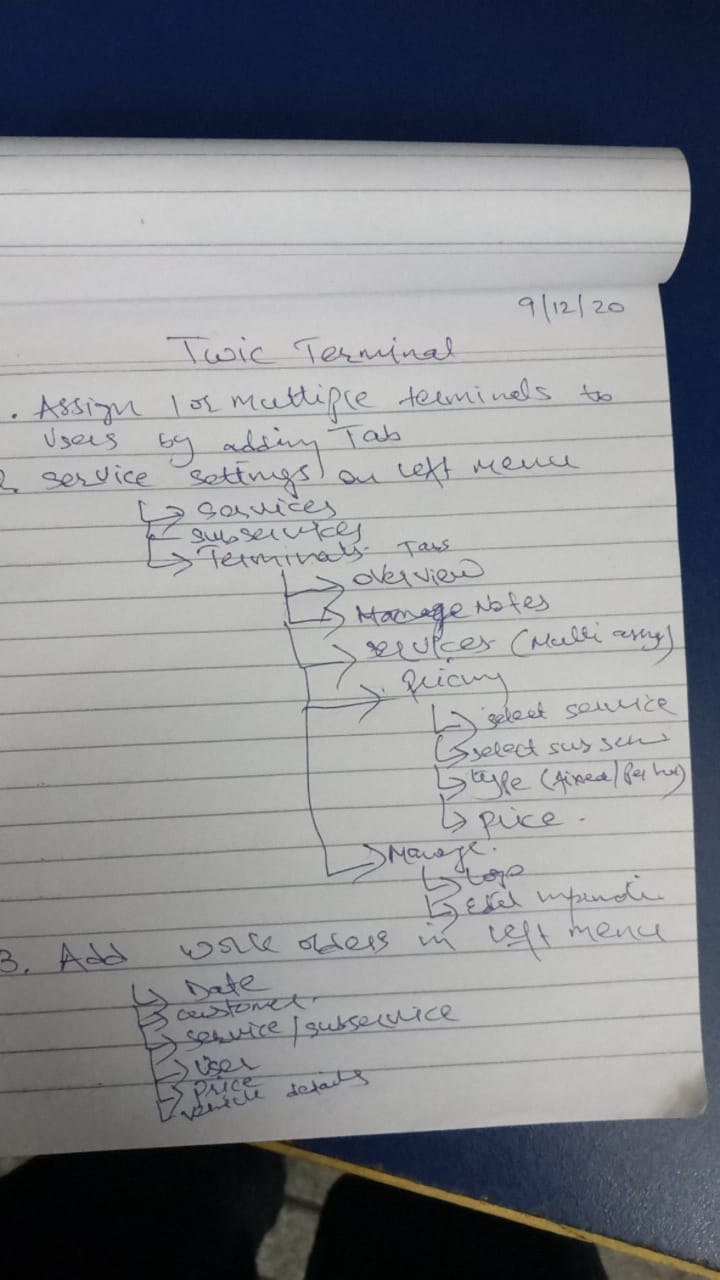 9/12/20
Twic Terminal
. Assign 1 or multiple terminals to
users by adding Tab
2. service settings on left menu
services
subservices
Terminals Tabs
overview
Manage Notes
services (Multi assign)
Pricing
select service
select sub serv
type (fixed/Per hr)
price.
Manage.
Logo
3. Add work orders in left menu
Date
customer.
service/subservice
User
Price
vehicle details